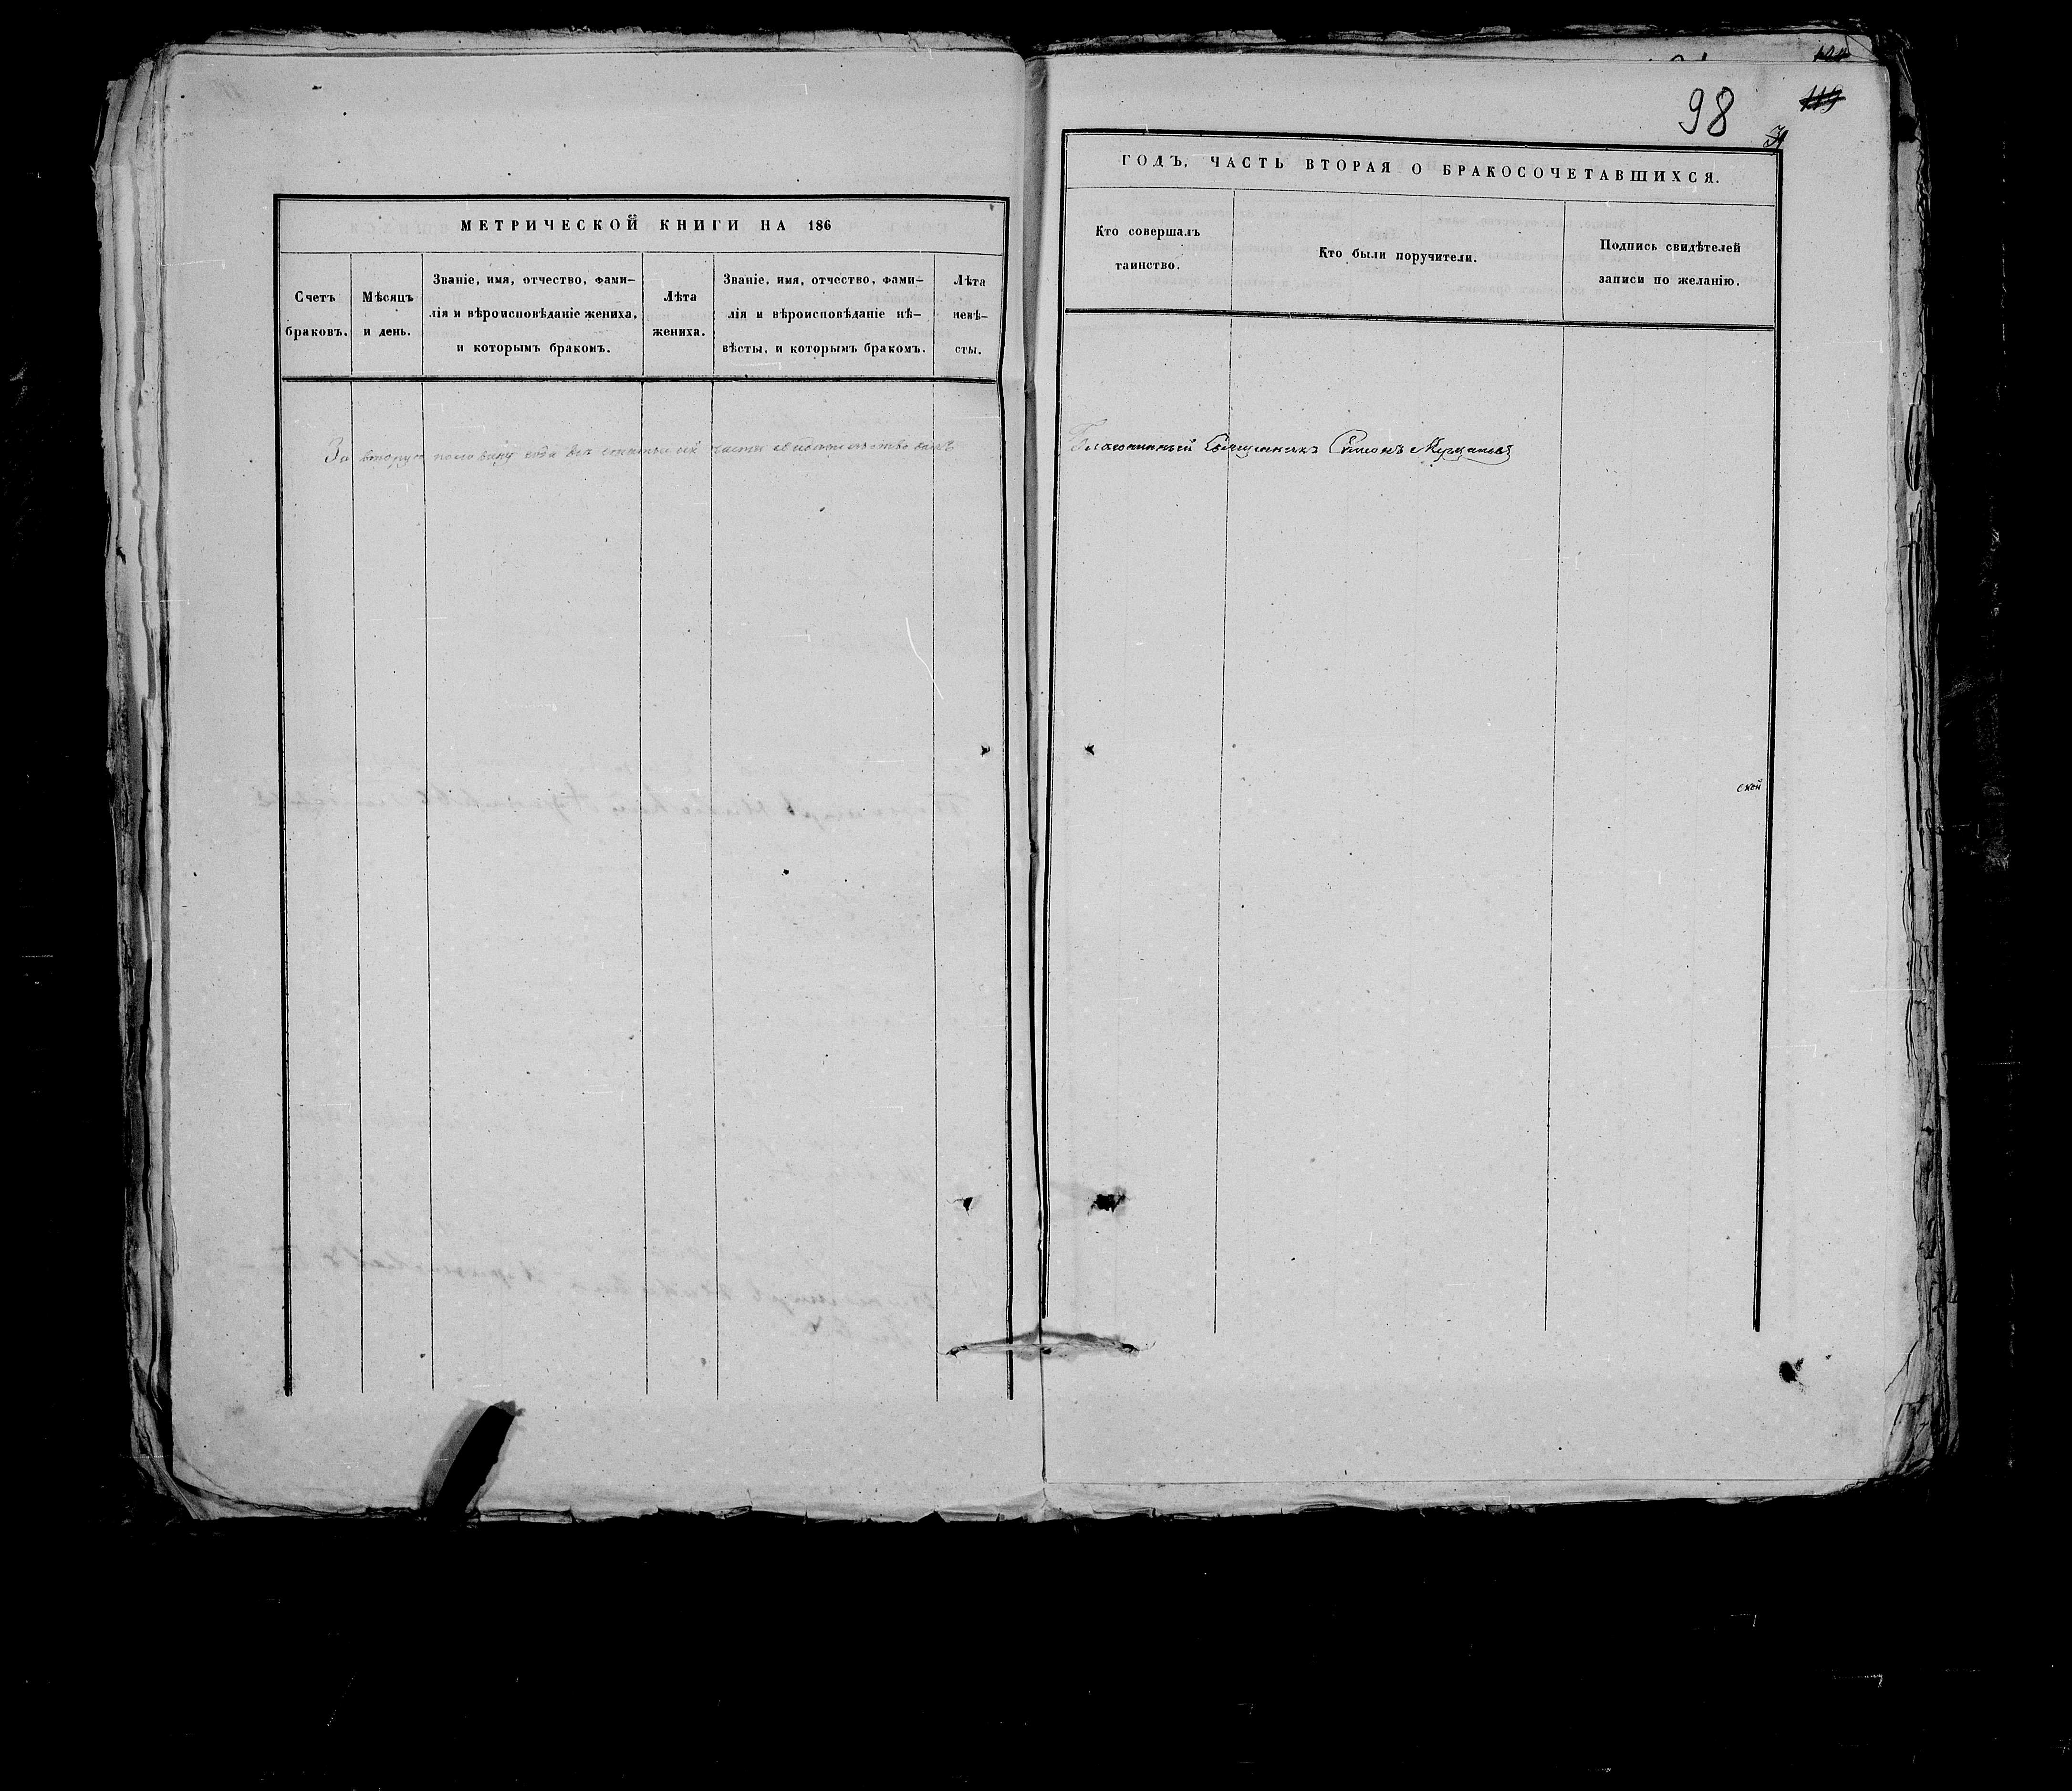 МЕТРИЧЕСКОЙ КНИГИ НА 186
Счетъ браковъ.
Мѣсяцъ и день.
Званіе, имя, отчество, фами-
лія и вѣроисповѣданіе жениха,
и которымъ бракомъ.
Лѣта жениха.
Званіе, имя, отчество, фами-
лія и вѣроисповѣданіе нѣ-
вѣсты, и которымъ бракомъ.
Лѣта
невѣ-
сты.
За вторую половину года
98
119
ГОДЪ, ЧАСТЬ ВТОРАЯ О БРАКОСОЧЕТАВШИХСЯ.
Кто совершалъ
таинство.
Кто были поручители.
Подпись свидѣтелей
записи по желанію.
Благочинный Священникъ Симеонъ
ской